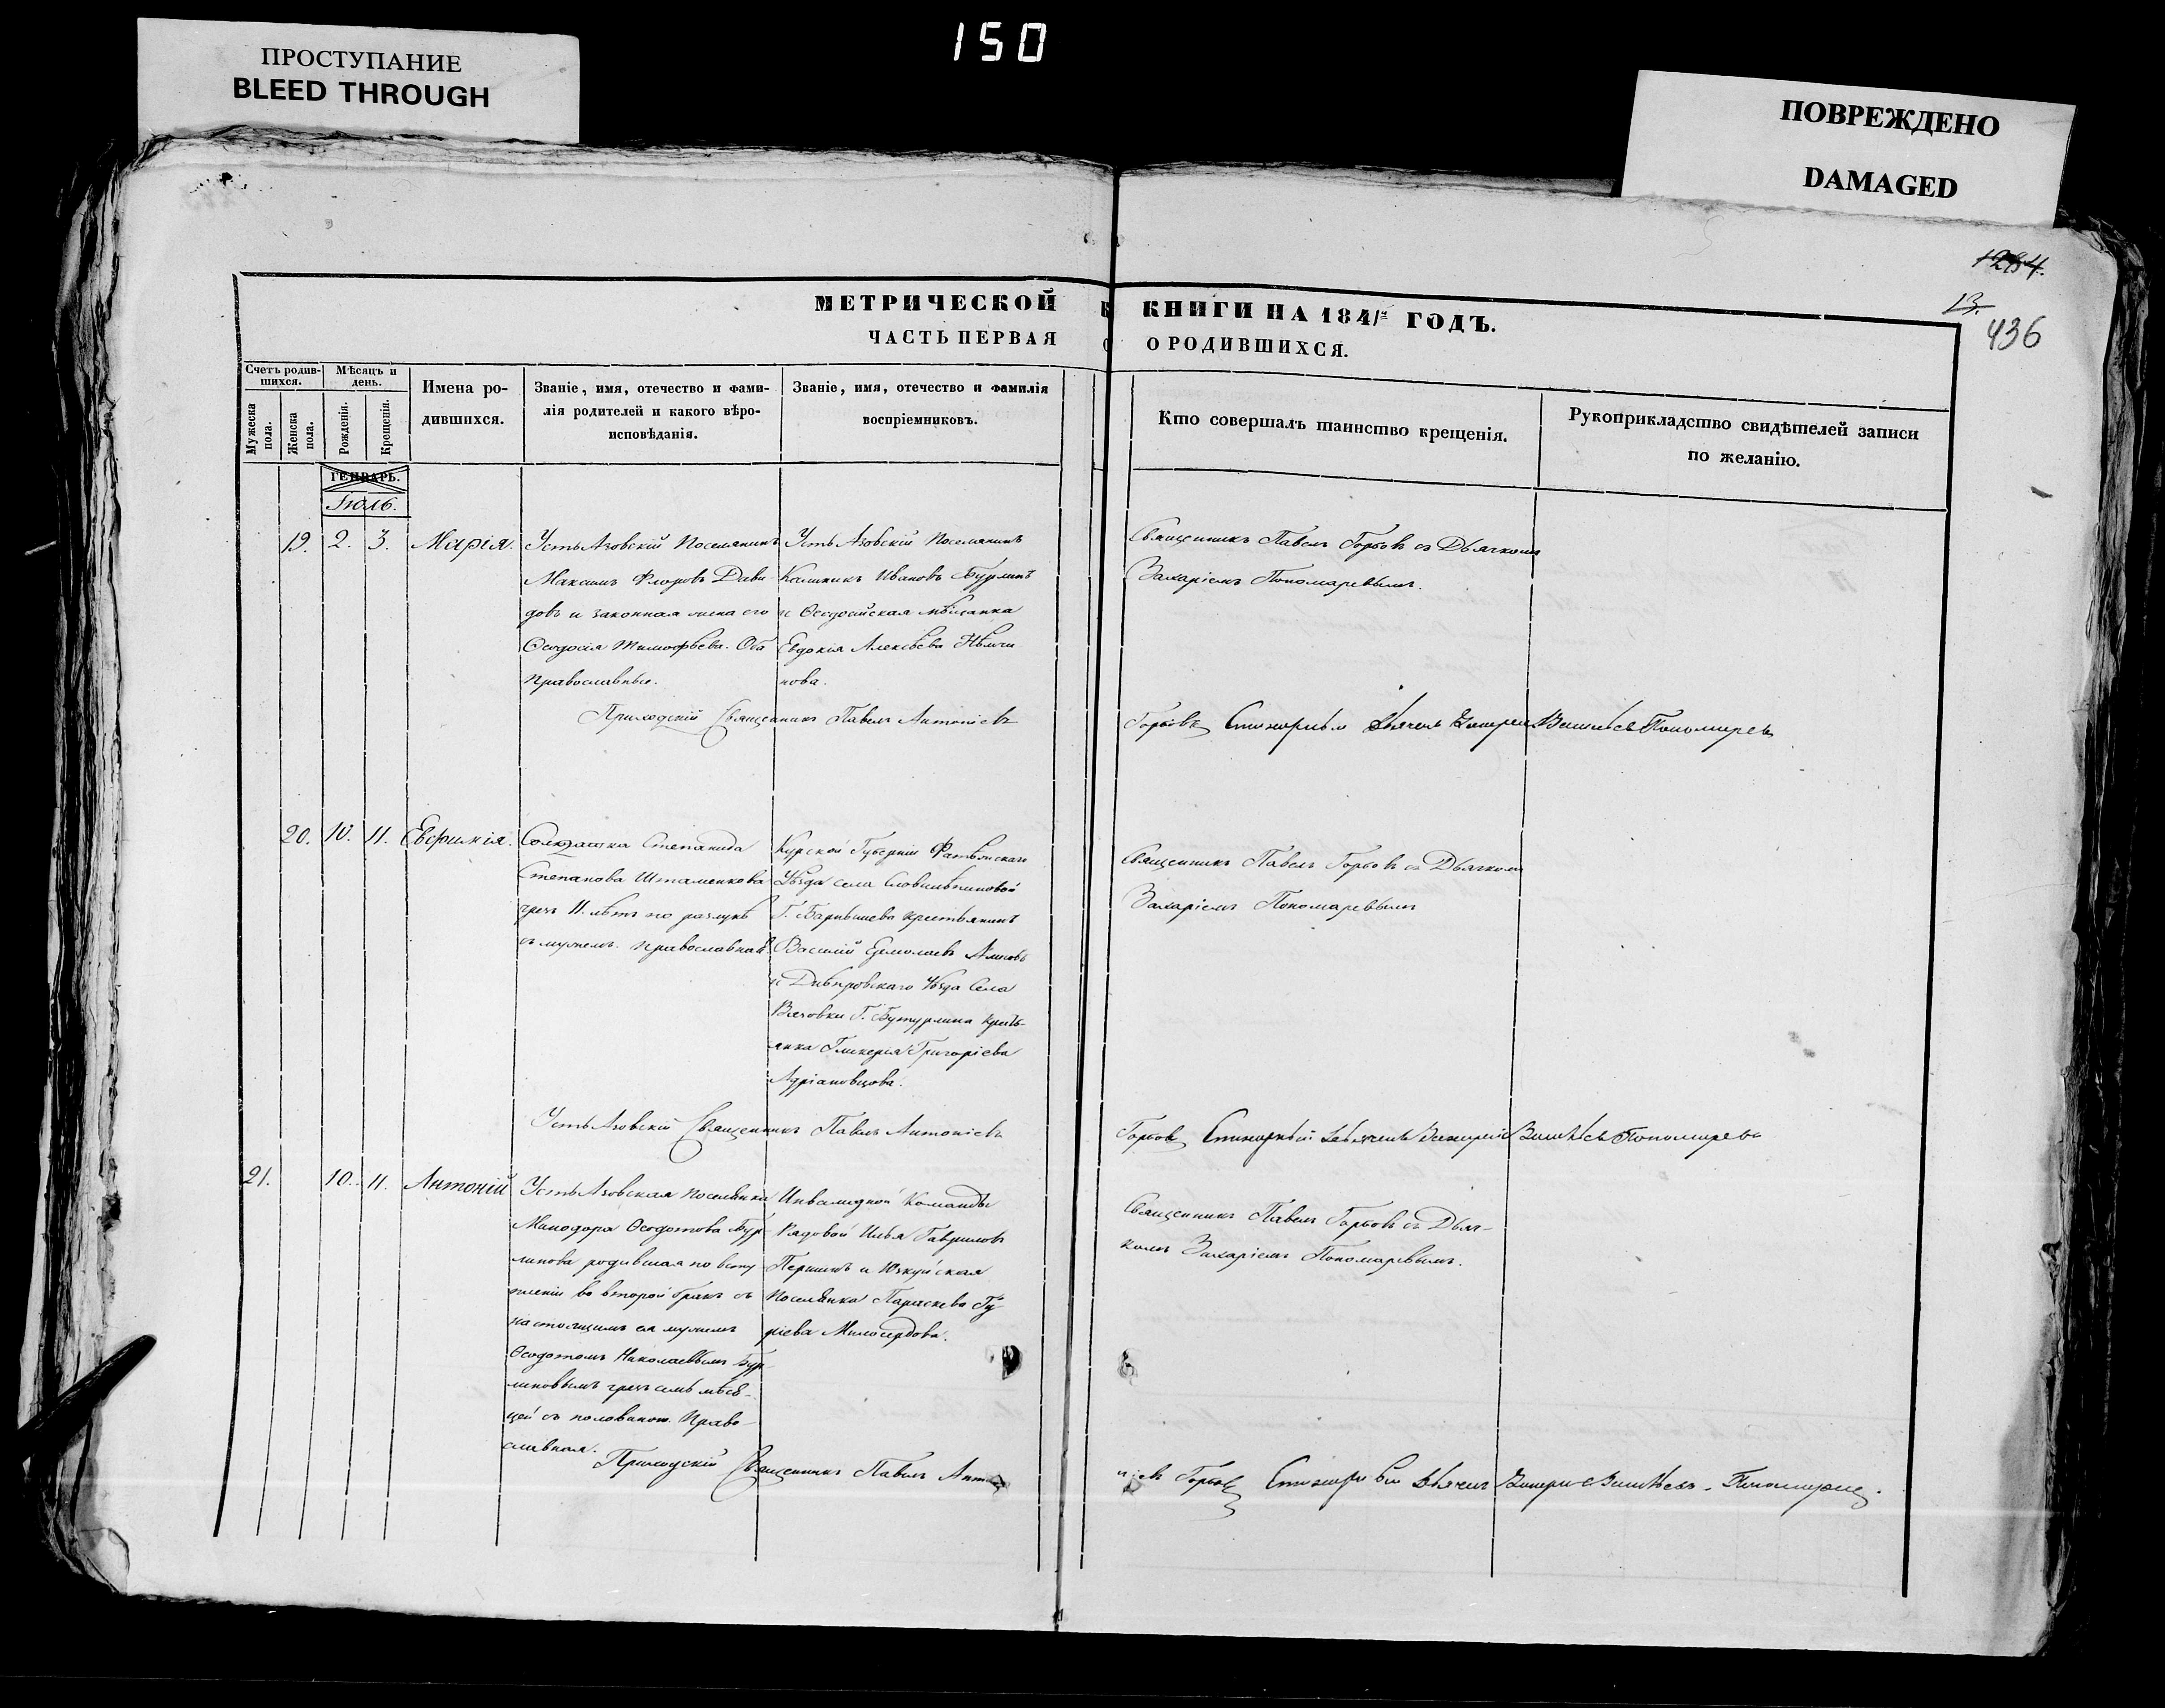 150
ПРОСТУПАНИЕ
BLEED THROUGH
ПОВРЕЖДЕНО
DAMAGED
1284.
13.
436
МЕТРИЧЕСКОЙ КНИГИ НА 1841й ГОДЪ.
ЧАСТЬ ПЕРВАЯ О РОДИВШИХСЯ.
Счетъ родив-
шихся.
Мужеска
пола.
Женска
пола.
Мѣсяцъ и
день.
Рожденія.
Крещенія.
Имена ро-
дившихся.
Званіе, имя, отечество и фами-
лія родителей и какого вѣро-
исповѣданія.
Званіе, имя, отечество и фамилія
воспріемниковъ.
Кто совершалъ таинство крещенія.
Рукоприкладство свидѣтелей записи
по желанію.
ГЕНВАРЬ.
Іюль.
19. 2. 3. Марія.
Усть Азовскій Поселянинъ
Максимъ Флоровъ Дави-
довъ и законная жена его
Ѳеодосія Тимофѣева. Оба
Православные.
Усть Азовскій Поселянинъ
Калиникъ Ивановъ Бурлинъ
и Ѳеодосійская мѣщанка
Евдокія Алексѣева Нѣмчи
нова.
Священникъ Павелъ Горьовъ съ Дьячкомъ
Захаріемъ Пономаревымъ.
Приходскій Священникъ Павелъ Антоніевъ
Пономаревъ
20. 10. 11. Евфимія.
Солдатка Степанида
Степанова Штаменкова
чрезъ 11. лѣтъ по разлукѣ
съ мужемъ. Православная
Курской Губерніи Фатежскаго
Уѣзда села
крестьянинъ
Василій Ермолаевъ
и Днѣпровскаго Уѣзда Села
Г. Бутурлина крестъ-
янка Гликерія Григоріева
Адріановцова.
Священникъ Павелъ Горьовъ съ Дьячкомъ
Захаріемъ Пономаревымъ
Усть Азовскій Священникъ Павелъ Антоніевъ
Пономаревъ
21. 10. 11. Антоній
Усть Азовская Поселянка
Минодора Ѳеодотова Бур-
линова родившая по всту-
пленіи во второй бракъ съ
настоящимъ ея мужемъ
Ѳеодотомъ Николаевымъ Бур-
линовымъ чрезъ семь мѣся-
цей съ половиною. Право-
славная.
Инвалидной Команды
Рядовой Илья Гавриловъ
Першинъ и Юзкуйская
Поселянка Параскева Гу-
ріева Милосердова.
Священникъ Павелъ Горьовъ съ Дьяч-
комъ Захаріемъ Пономаревымъ.
Приходскій Священникъ Павелъ Анто
ніевъ